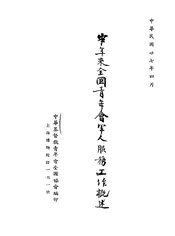 中華民國廿七年四月
半年來全國青年會軍人服務工作概述
中華基督教青年會全國協會編印
上海博物院路一三一號